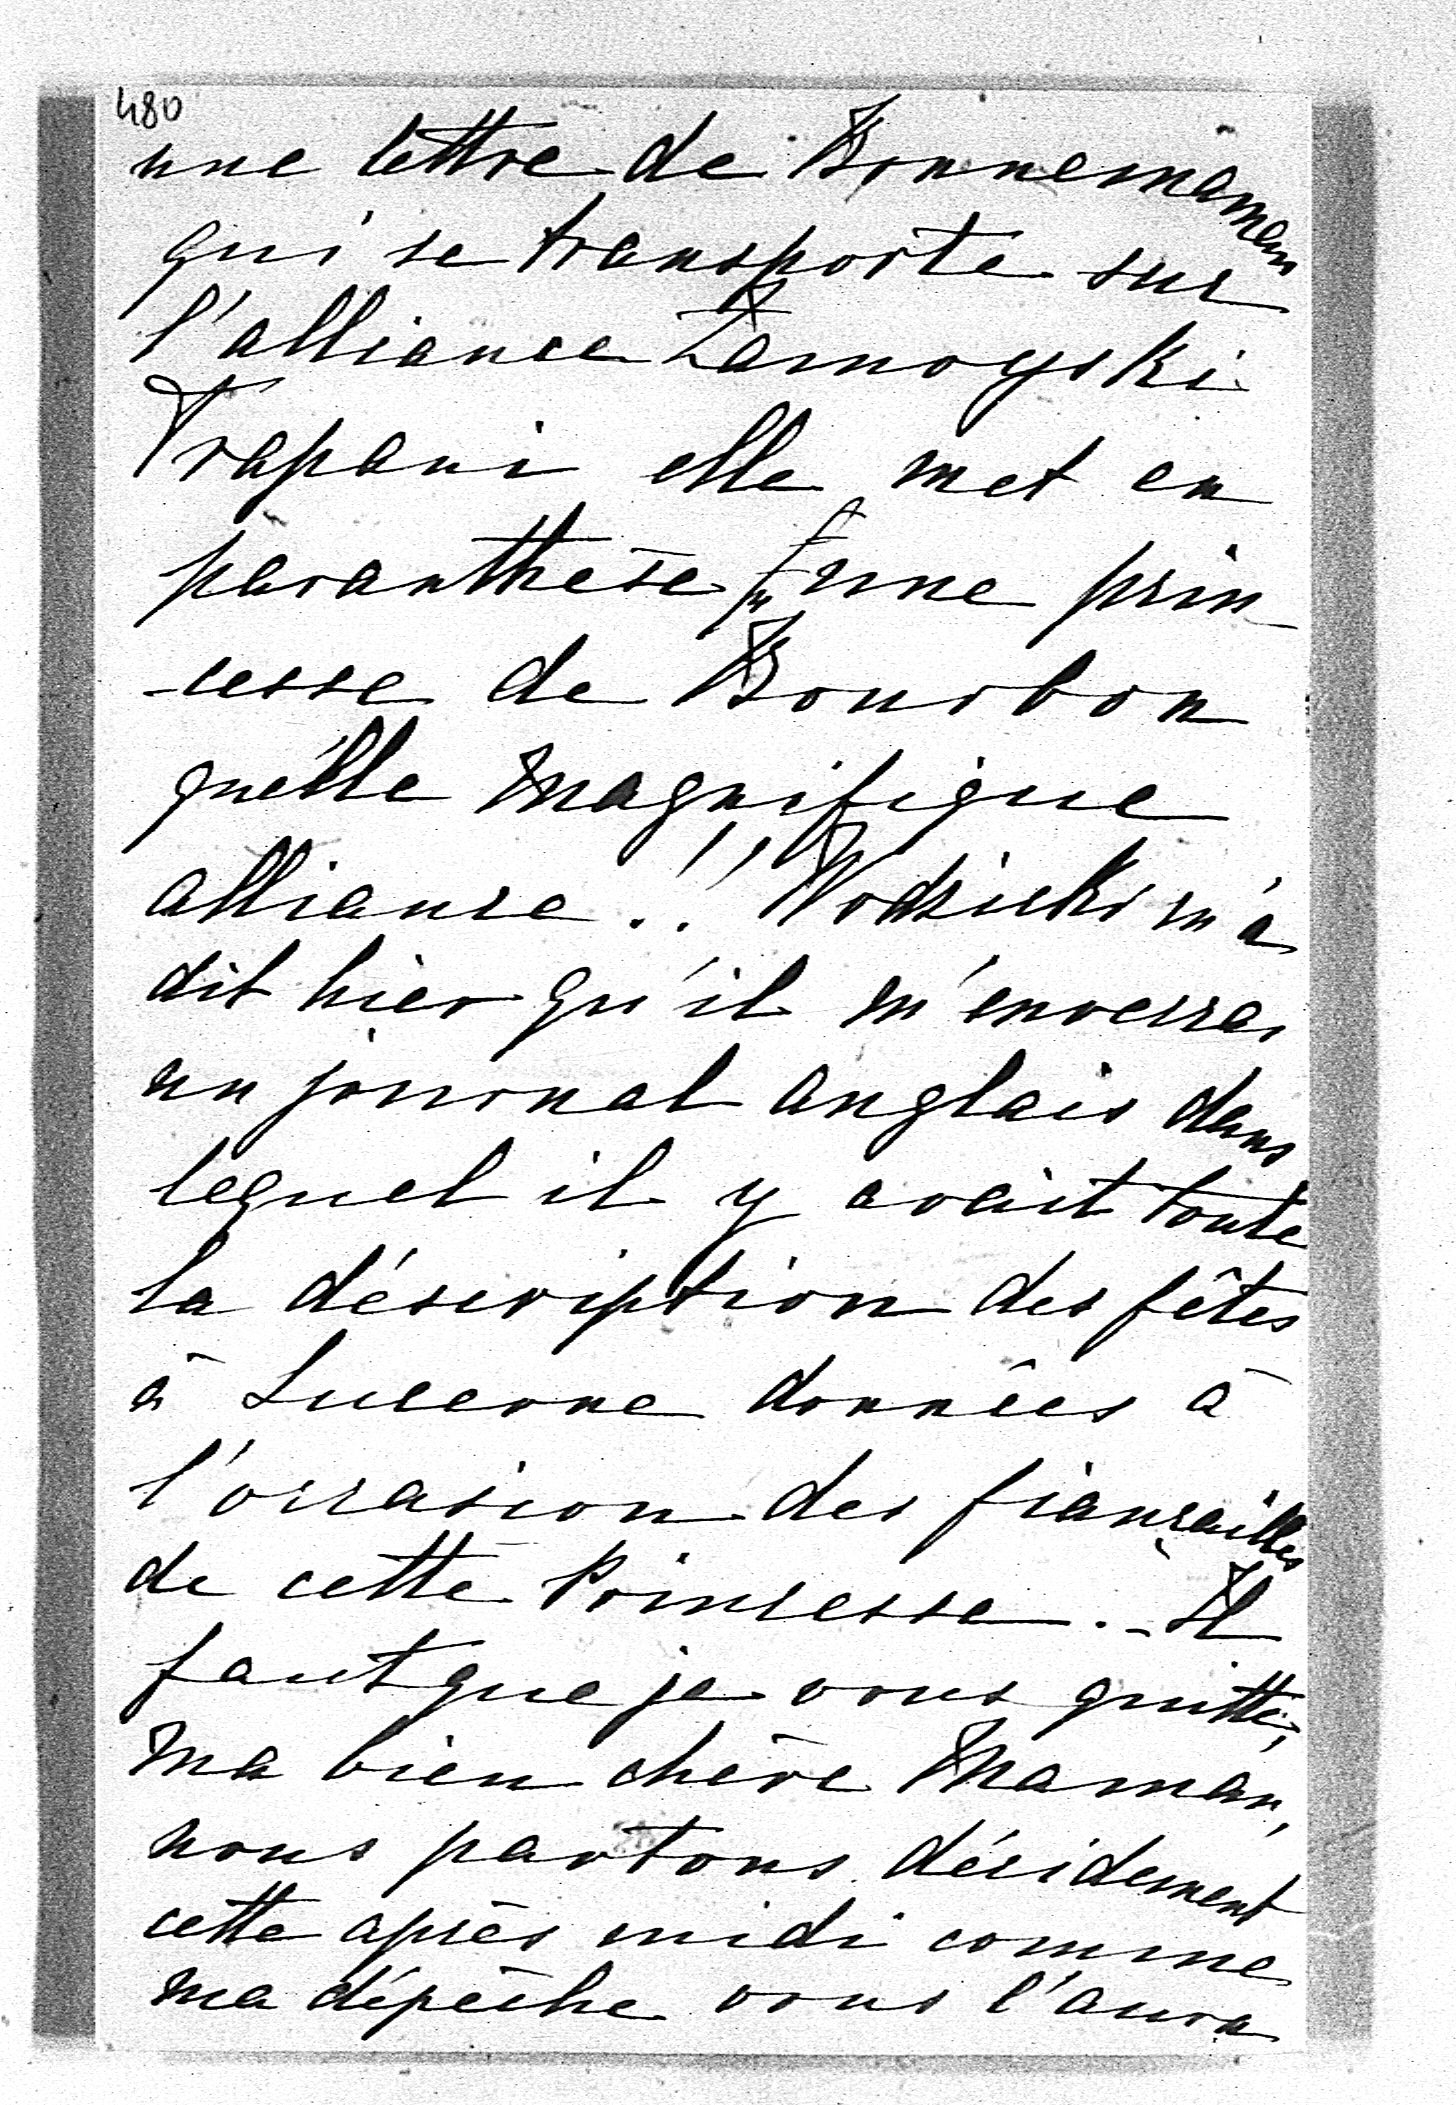 480
une lettre de Bonnemaman
qui se transporte sur
l'alliance Zamoyski
Trapani elle met en
paranthèse une prin-
-cesse de Bourbon
quélle magnifique
alliance!! Wodzicki m'a
dit hier qu'il m'enverra
un journal anglais dans
lequel il y avait toute
la déscription des fêtes
à Lucerne données à
l'occasion des fiançailles
de cette Princesse. - Il
faut que je vous quitte,
ma bien chère Maman,
nous partons décidement
cette après midi comme
ma dépêche vous l'aura